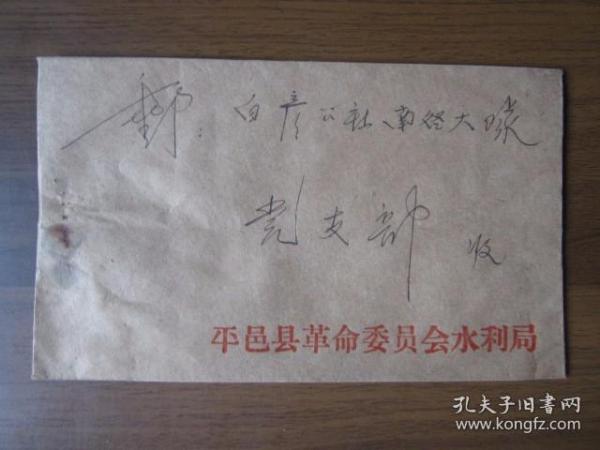 邮: 白彦公社南径大队
党支部 收
平邑县革命委员会水利局
孔夫子旧书网
www.kongfz.com